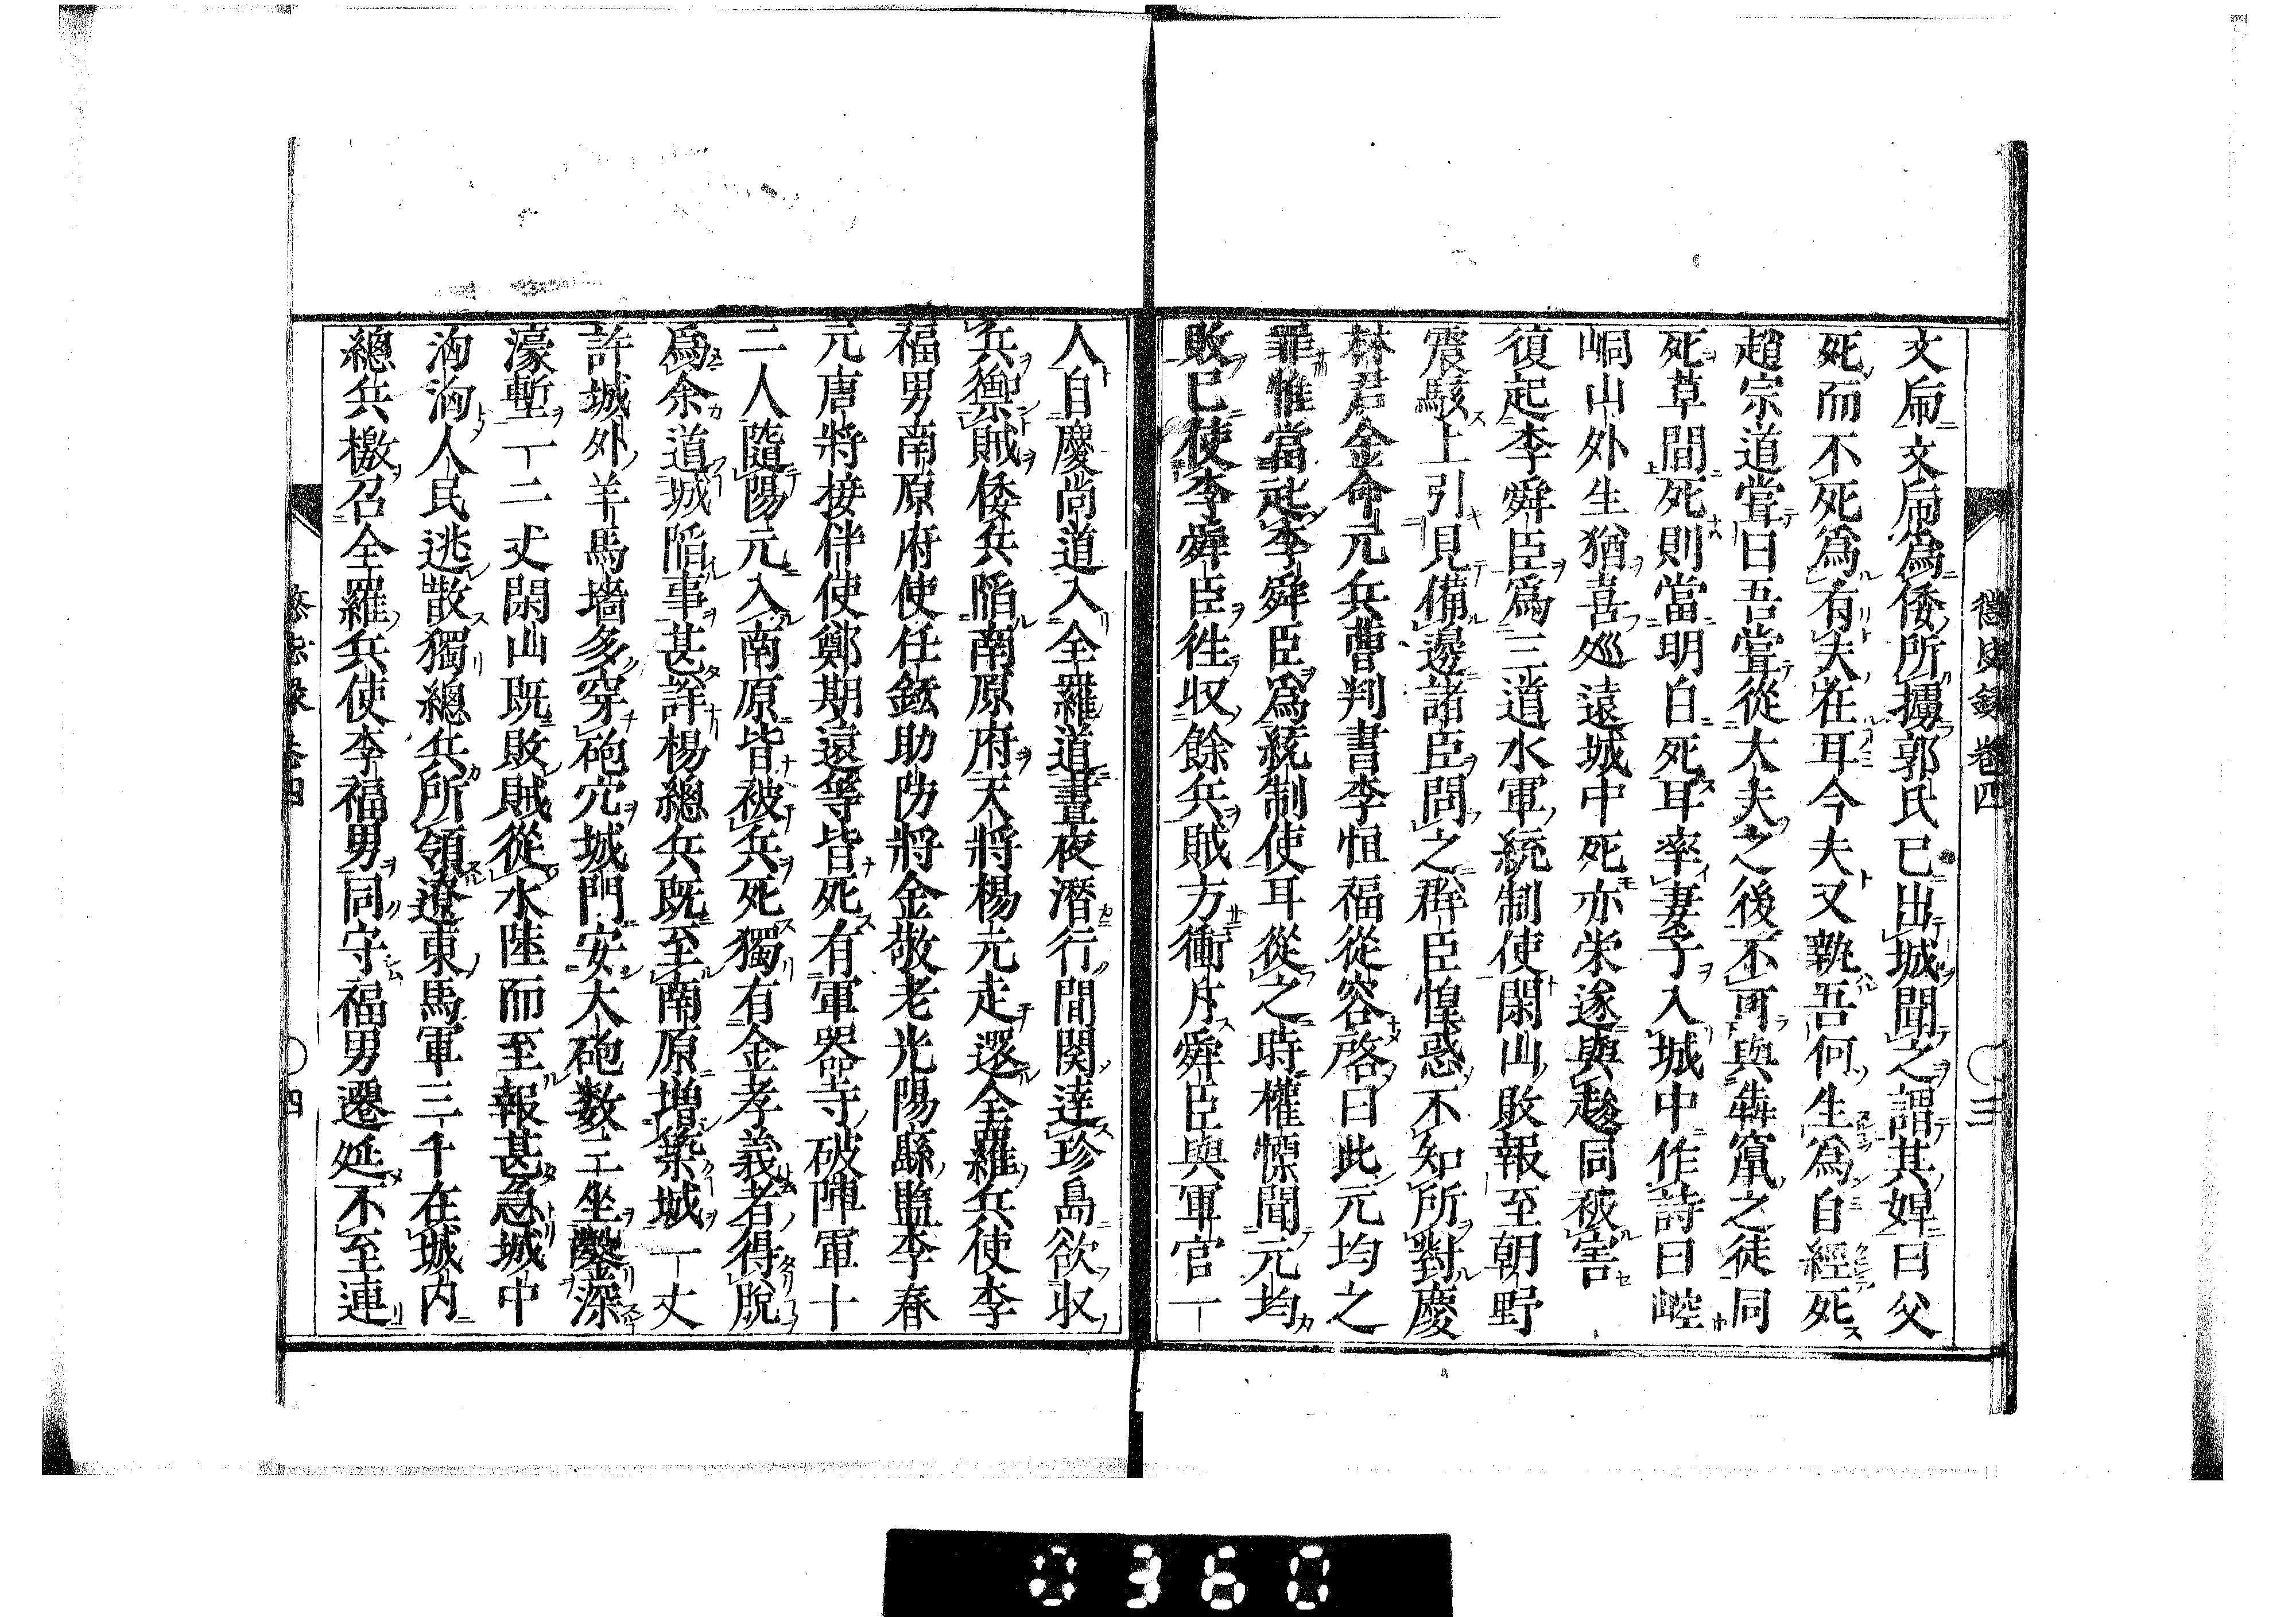 懲毖録 卷四 〇三
文虎文虎爲倭所擄郭氏已出城聞之謂其婢曰父
死而不死爲有夫在耳今夫又執吾何生爲自經死
趙宗道嘗曰吾嘗從大夫之後不可與犇竄之徒同
死草間死則當明白死耳率妻子入城中作詩曰崆
峒山外生猶喜巡遠城中死亦栄遂與𧼈同被害
復起李舜臣爲三道水軍統制使閑山敗報至朝野
震駭上引見備邊諸臣問之群臣惶惑不知所對慶
林君金命元兵曹判書李恒福從容啓曰此元均之
罪惟當起李舜臣爲統制使耳從之時權慄聞元均
敗已使李舜臣徃収餘兵賊方衝斥舜臣與軍官一
人自慶尚道入全羅道晝夜潛行間関達珍島欲収
兵禦賊倭兵陷南原府天將楊元走還全羅兵使李
福男南原府使任鉉助防將金敬老光陽縣監李春
元唐將接伴使鄭期遠等皆死有軍器寺破陣軍十
二人隨陽元入南原皆被兵死獨有金孝義者得脱
爲余道城陷事甚詳楊總兵既至南原増築城一丈
許城外羊馬墻多穿砲穴城門安大砲数三坐鑿深
濠塹一二丈閑山既敗賊從水陸而至報甚急城中
洶洶人民逃散獨總兵所領遼東馬軍三千在城内
總兵檄召全羅兵使李福男同守福男遷延不至連
懲毖録 卷四 〇四
0360